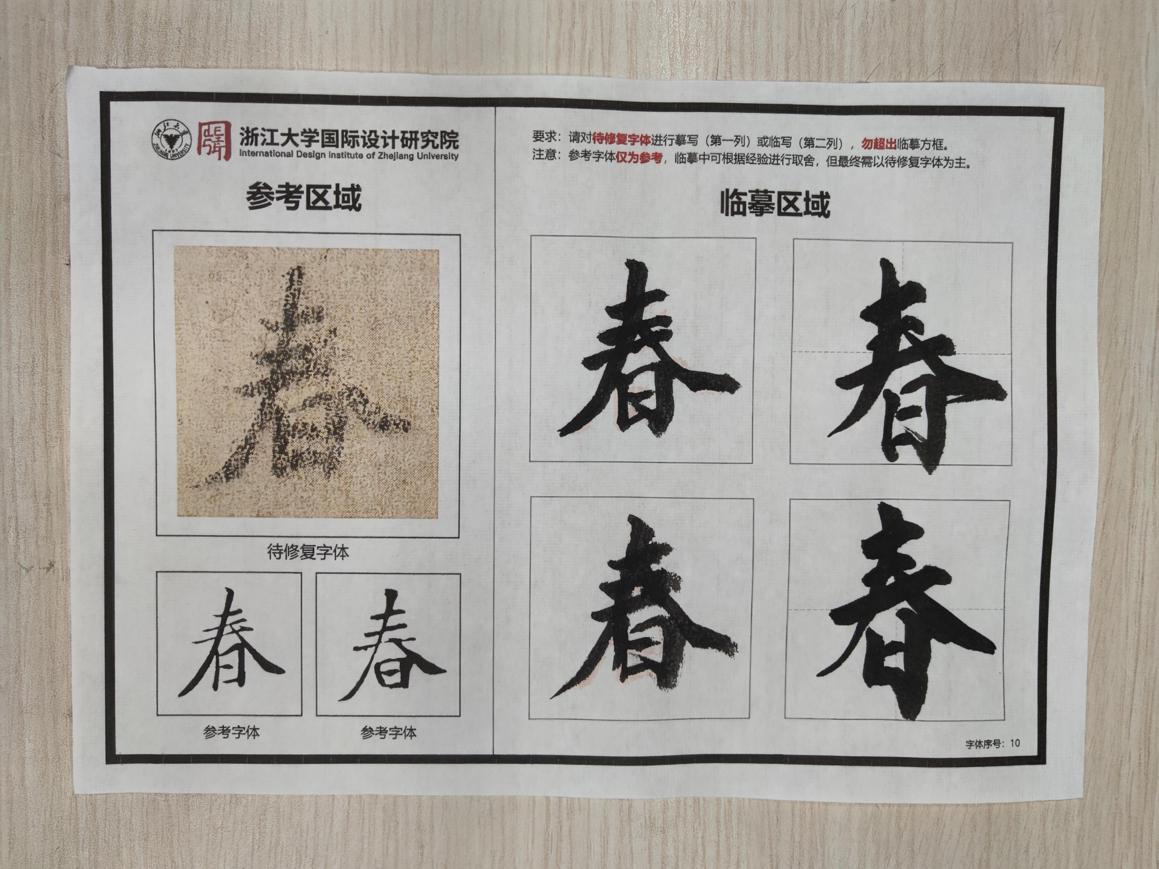 浙江大学国际设计研究院
International Design Institute of Zhejiang University
参考区域
春
待修复字体
春 春
参考字体 参考字体
要求：请对待修复字体进行摹写（第一列）或临写（第二列），勿超出临摹方框。
注意：参考字体仅为参考，临摹中可根据经验进行取舍，但最终需以待修复字体为主。
临摹区域
春 春
春 春
字体序号：10